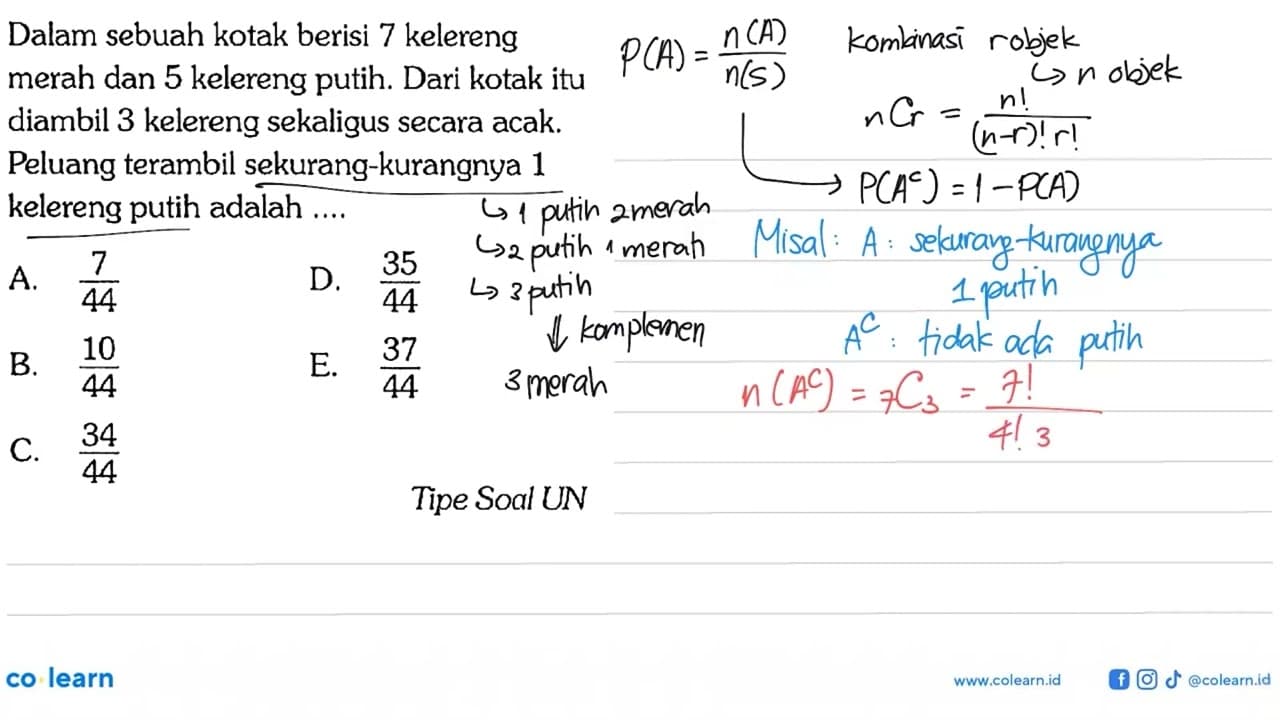 Dalam sebuah kotak berisi 7 kelereng
merah dan 5 kelereng putih. Dari kotak itu
diambil 3 kelereng sekaligus secara acak.
Peluang terambil sekurang-kurangnya 1
kelereng putih adalah ....
A. 7/44
B. 10/44
C. 34/44
D. 35/44
E. 37/44
Tipe Soal UN
↳ 1 putih 2 merah
↳ 2 putih 1 merah
↳ 3 putih
⇓ komplemen
3 merah
P(A) = n(A)/n(S)
kombinasi r objek
↳ n objek
nCr = n!/(n-r)! r!
→ P(Aᶜ) = 1 - P(A)
Misal : A : sekurang-kurangnya
1 putih
Aᶜ : tidak ada putih
n(Aᶜ) = ₇C₃ = 7!/4! 3
co learn
www.colearn.id
@colearn.id